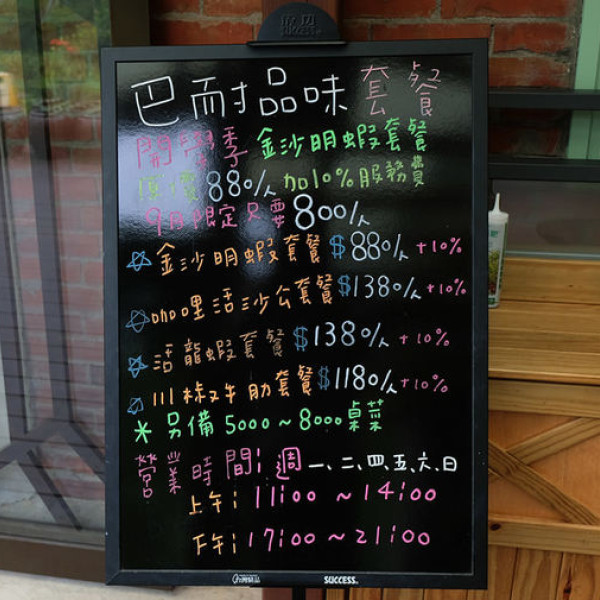 巴耐品味套餐
開學季 金沙明蝦套餐
原價880/人 加10%服務費
9月限定只要800/人
金沙明蝦套餐 $880/人 +10%
咖哩活沙公套餐 $1380/人 +10%
活龍蝦套餐 $1380/人 +10%
川椒牛肋套餐 $1180/人 +10%
* 另備 5000 ~ 8000 桌菜
營業時間: 週一、二、四、五、六、日
上午: 11:00 ~ 14:00
下午: 17:00 ~ 21:00
SUCCESS.